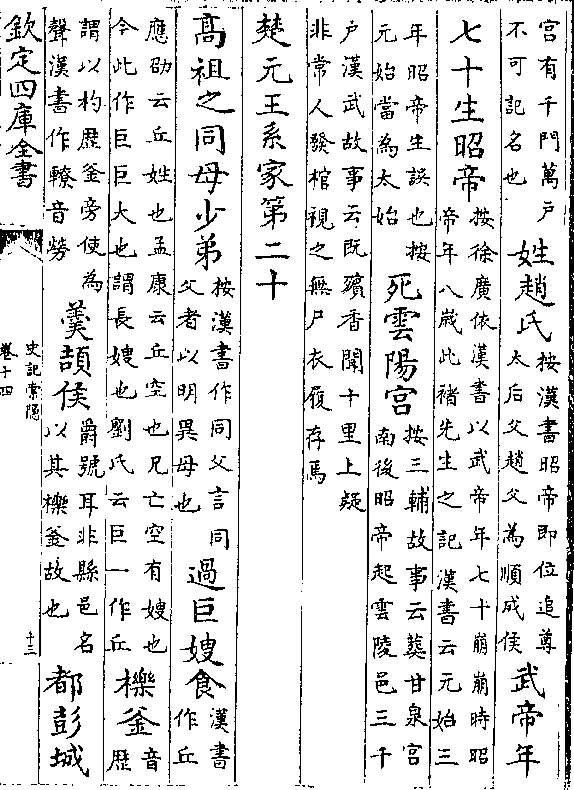 宮有千門萬户不可記名也姓趙氏按漢書昭帝即位追尊太后父趙父為順成侯武帝年
七十生昭帝按徐廣依漢書以武帝年七十崩崩時昭帝年八歲此褚先生之記漢書云元始三
年昭帝生誤也按元始當為太始死雲陽宫按三輔故事云葬甘泉宮南後昭帝起雲陵邑三千
户漢武故事云既殯香聞十里上疑非常人發棺視之無尸衣履存焉
楚元王系家第二十
高祖之同母少弟按漢書作同父言同父者以明異母也過巨嫂食漢書作丘
應劭云丘姓也孟康云丘空也兄亡空有嫂也今此作巨巨大也謂長嫂也劉氏云巨一作丘櫟釜音歷
謂以杓歷釜旁使為聲漢書作轑音勞羮頡侯爵號耳非縣邑名以其櫟釜故也都彭城
欽定四庫全書
史記索隱
卷十四
十三